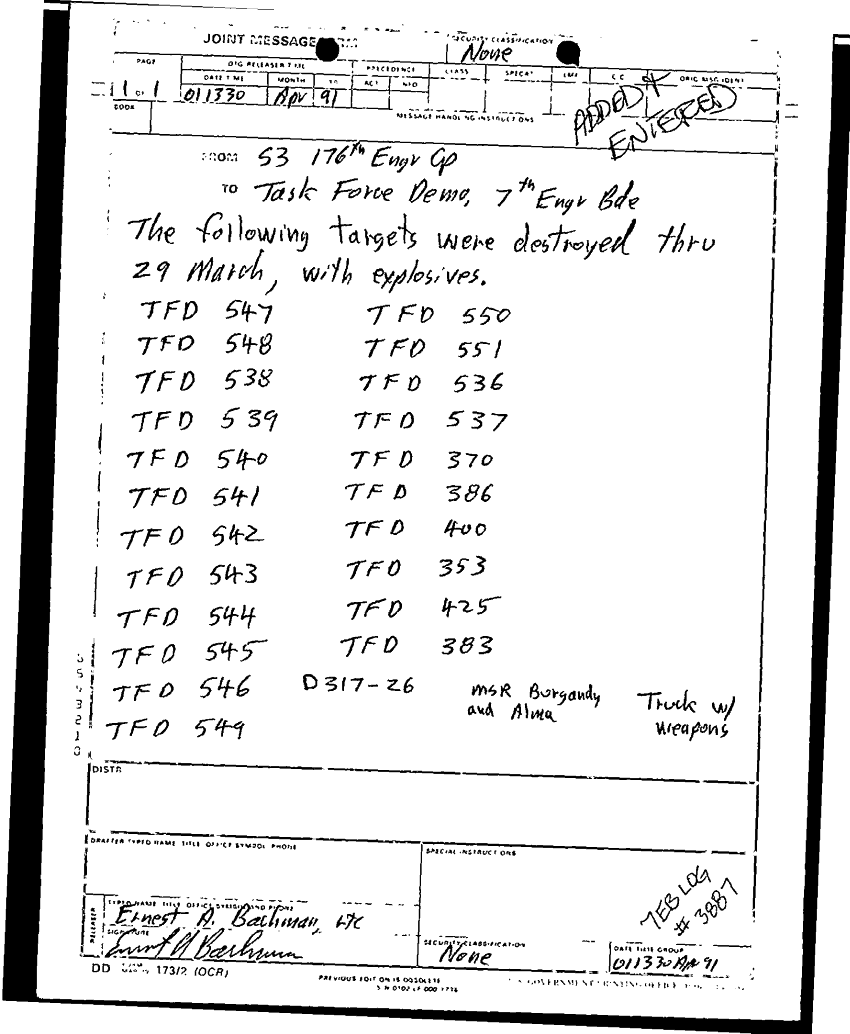 JOINT MESSAGE FORM
SECURITY CLASSIFICATION
None
PAGE
DTG RELEASER TIME
PRECEDENCE
CLASS
SPECAT
LMF
CIC
ORIG MSG IDENT
DATE TIME
MONTH
YR
ACT
INFO
1 OF 1
011330
Apr
91
ADDED &
ENTERED
BOOK
MESSAGE HANDLING INSTRUCTIONS
FROM S3 176th Engr Gp
TO Task Force Demo, 7th Engr Bde
The following targets were destroyed thru
29 March, with explosives.
TFD 547 TFD 550
TFD 548 TFD 551
TFD 538 TFD 536
TFD 539 TFD 537
TFD 540 TFD 370
TFD 541 TFD 386
TFD 542 TFD 400
TFD 543 TFD 353
TFD 544 TFD 425
TFD 545 TFD 383
TFD 546 D317-26 MSR Burgandy and Alma Truck w/ weapons
TFD 549
6
5
4
3
2
1
0
DISTR
DRAFTER TYPED NAME TITLE OFFICE SYMBOL PHONE
SPECIAL INSTRUCTIONS
7EB LOG
# 3887
RELEASER
TYPED NAME TITLE OFFICE SYMBOL AND PHONE
Ernest A. Bachman, LTC
SIGNATURE
Ernest A Bachman
SECURITY CLASSIFICATION
None
DATE TIME GROUP
011330 Apr 91
DD FORM 173/2 (OCR)
PREVIOUS EDITION IS OBSOLETE